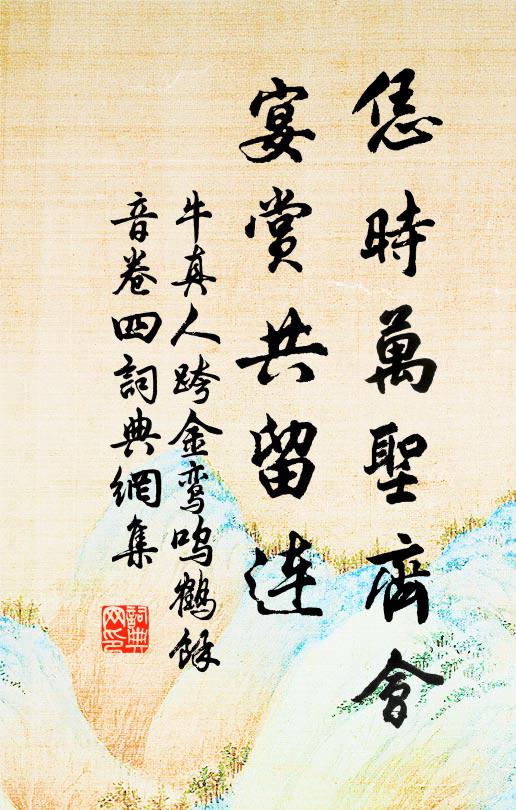 恁時萬聖齊會
宴賞共留连
牛真人跨金鸾鸣鶴餘
音卷四詞典網集
詞典网印